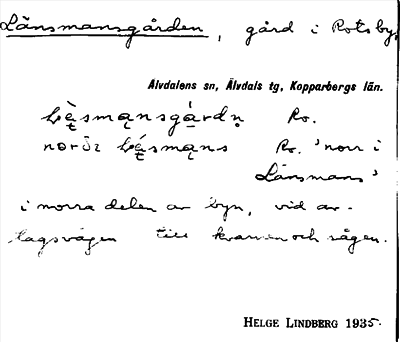 Länsmansgården, gård i Rots by,
Älvdalens sn, Älvdals tg, Kopparbergs län.
Ro.
Ro. 'norr i
Länsmans'
i norra delen av byn, vid av-
tagsvägen till kvarnen och sågen.
HELGE LINDBERG 1935.